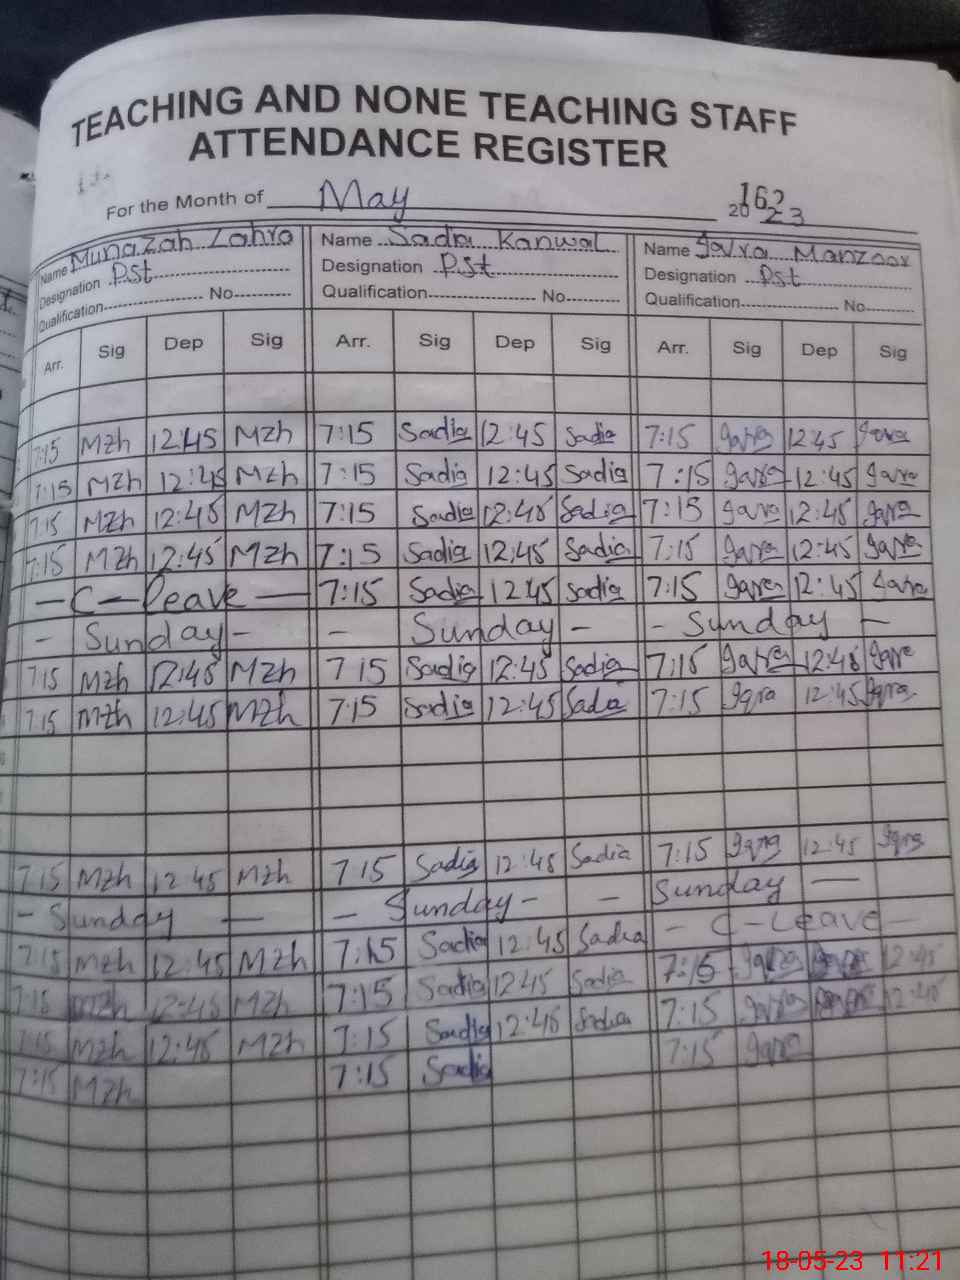 TEACHING AND NONE TEACHING STAFF
ATTENDANCE REGISTER
For the Month of May 2023
162
Name Munazah Zahra Name Sadia Kanwal Name Iqra Manzoor
Designation Pst Designation Pst Designation Pst
Qualification No Qualification No Qualification No
Arr. Sig Dep Sig Arr. Sig Dep Sig Arr. Sig Dep Sig
7:15 Mzh 12:45 Mzh 7:15 Sadia 12:45 Sadia 7:15 Iqra 12:45 Iqra
7:15 Mzh 12:45 Mzh 7:15 Sadia 12:45 Sadia 7:15 Iqra 12:45 Iqra
7:15 Mzh 12:45 Mzh 7:15 Sadia 12:45 Sadia 7:15 Iqra 12:45 Iqra
7:15 Mzh 12:45 Mzh 7:15 Sadia 12:45 Sadia 7:15 Iqra 12:45 Iqra
- C - Leave - 7:15 Sadia 12:45 Sadia 7:15 Iqra 12:45 Iqra
- Sunday - - Sunday - - Sunday -
7:15 Mzh 12:45 Mzh 7 15 Sadia 12:45 Sadia 7:15 Iqra 12:45 Iqra
7:15 Mzh 12:45 Mzh 7:15 Sadia 12:45 Sada 7:15 Iqra 12:45 Iqra
7 15 Mzh 12:45 Mzh 7 15 Sadia 12:45 Sadia 7:15 Iqra 12:45 Iqra
- Sunday - - Sunday - - Sunday -
7:15 Mzh 12:45 Mzh 7:15 Sadia 12:45 Sadia - C - Leave -
7:15 Mzh 12:45 Mzh 7:15 Sadia 12 45 Sadia 7:15 Iqra 12:45
7:15 Mzh 12:45 Mzh 7:15 Sadia 12:45 Sadia 7:15 Iqra 12:45
7:15 Mzh 7:15 Sadia 7:15 Iqra
18-05-23 11:21